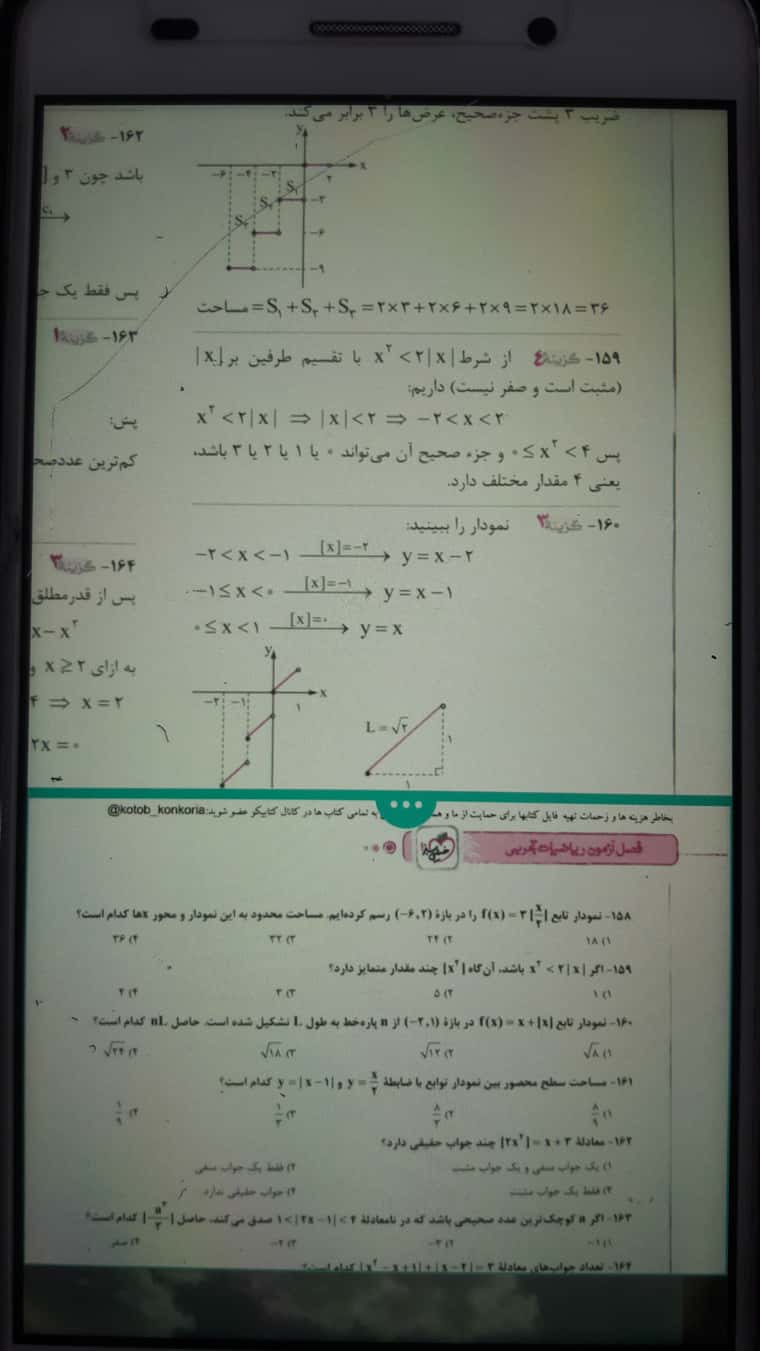 ضریب ۳ پشت جزءصحیح، عرض‌ها را ۳ برابر می‌کند.
y
۱
-۶ -۴ -۲ ۲ x
S₁
-۳
S₂
S₃
-۶
-۹
مساحت = S₁ + S₂ + S₃ = ۲×۳+۲×۶+۲×۹ = ۲×۱۸ = ۳۶
۱۵۹- گزینهٔ ۴ از شرط x² < ۲|x| با تقسیم طرفین بر |x|
(مثبت است و صفر نیست) داریم:
x² < ۲|x| ⇒ |x| < ۲ ⇒ -۲ < x < ۲
پس ۰ ≤ x² < ۴ و جزء صحیح آن می‌تواند ۰ یا ۱ یا ۲ یا ۳ باشد،
یعنی ۴ مقدار مختلف دارد.
۱۶۰- گزینهٔ ۳ نمودار را ببینید:
-۲ < x < -۱ [x]=-۲ → y = x - ۲
-۱ ≤ x < ۰ [x]=-۱ → y = x - ۱
۰ ≤ x < ۱ [x]=۰ → y = x
y
-۲ -۱ ۱ x
L = √۲
۱
۱
۱۶۲- گزینهٔ ۲
باشد چون ۳ و [
پس فقط یک ج
۱۶۳- گزینهٔ ۱
پس:
کم‌ترین عددصح
۱۶۴- گزینهٔ ۳
پس از قدرمطلق
x - x²
به ازای x ≥ ۲ و
۴ ⇒ x = ۲
۲x = ۰
بخاطر هزینه ها و زحمات تهیه فایل کتابها برای حمایت از ما و هم به تمامی کتاب ها در کانال کتابیکو عضو شوید:@kotob_konkoria
فصل آزمون ریاضیات تجربی
۱۵۸- نمودار تابع f(x) = ۳[x/۲] را در بازهٔ (-۶,۲) رسم کرده‌ایم. مساحت محدود به این نمودار و محور xها کدام است؟
۱) ۱۸ ۲) ۲۴ ۳) ۳۲ ۴) ۳۶
۱۵۹- اگر x² < ۲|x| باشد، آن‌گاه [x²] چند مقدار متمایز دارد؟
۱) ۱ ۲) ۵ ۳) ۳ ۴) ۴
۱۶۰- نمودار تابع f(x) = x + [x] در بازهٔ (-۲,۱) از n پاره‌خط به طول L تشکیل شده است. حاصل nL کدام است؟
۱) √۸ ۲) √۱۲ ۳) √۱۸ ۴) √۲۴
۱۶۱- مساحت سطح محصور بین نمودار توابع با ضابطهٔ y = x/۲ و y = |x-۱| کدام است؟
۱) ۸/۹ ۲) ۸/۳ ۳) ۱/۳ ۴) ۱/۹
۱۶۲- معادلهٔ [۲x²] = x + ۳ چند جواب حقیقی دارد؟
۱) یک جواب منفی و یک جواب مثبت ۲) فقط یک جواب منفی
۳) فقط یک جواب مثبت ۴) جواب حقیقی ندارد
۱۶۳- اگر a کوچک‌ترین عدد صحیحی باشد که در نامعادلهٔ ۱ < |۲x-۱| < ۴ صدق می‌کند، حاصل [-a²/۳] کدام است؟
۱) -۱ ۲) -۳ ۳) -۲ ۴) صفر
۱۶۴- تعداد جواب‌های معادلهٔ |x² - x + ۱| + |x - ۲| = ۳ کدام است؟